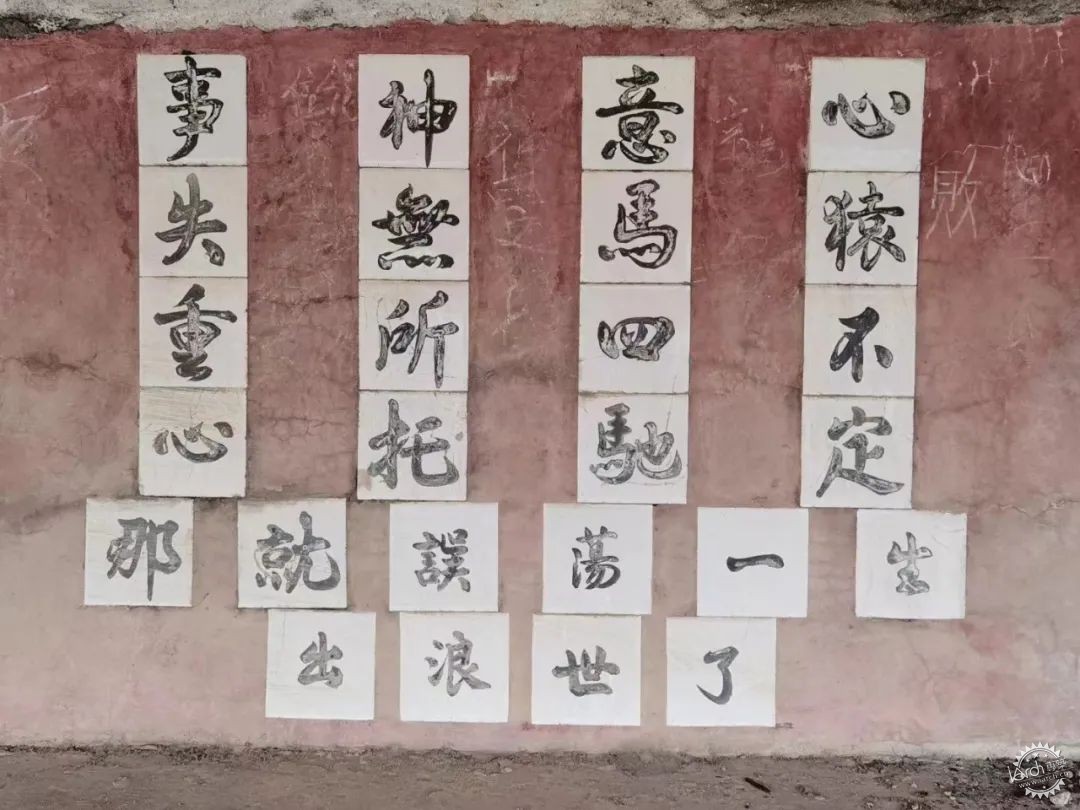 心猿不定
意馬四馳
神無所托
事失重心
那就誤蕩一生
出浪世了
败